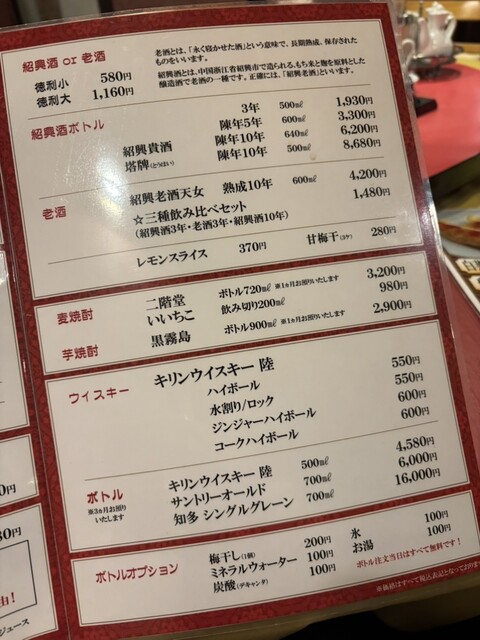 紹興酒 or 老酒
徳利小 580円
徳利大 1,160円
老酒とは、「永く寝かせた酒」という意味で、長期熟成、保存された
ものをいいます。
紹興酒とは、中国浙江省紹興市で造られる、もち米と麹を原料とした
醸造酒で老酒の一種です。正確には、「紹興老酒」といいます。
紹興酒ボトル
3年 500ml 1,930円
陳年5年 600ml 3,300円
紹興貴酒 陳年10年 640ml 6,200円
塔牌(とうはい) 陳年10年 500ml 8,680円
老酒
紹興老酒天女 熟成10年 600ml 4,200円
☆三種飲み比べセット 1,480円
(紹興酒3年・老酒3年・紹興酒10年)
レモンスライス 370円 甘梅干(3ケ) 280円
麦焼酎 二階堂 ボトル720ml ※1ヵ月お預りいたします 3,200円
いいちこ 飲み切り200ml 980円
芋焼酎 黒霧島 ボトル900ml ※1ヵ月お預りいたします 2,900円
ウイスキー
キリンウイスキー 陸
ハイボール 550円
水割り/ロック 550円
ジンジャーハイボール 600円
コークハイボール 600円
ボトル
※3ヵ月お預り
いたします
キリンウイスキー 陸 500ml 4,580円
サントリーオールド 700ml 6,000円
知多 シングルグレーン 700ml 16,000円
ボトルオプション
梅干し(1個) 200円 氷 100円
ミネラルウォーター 100円 お湯 100円
炭酸(デキャンタ) 100円 ボトル注文当日はすべて無料です!
※価格はすべて税込表記となっており